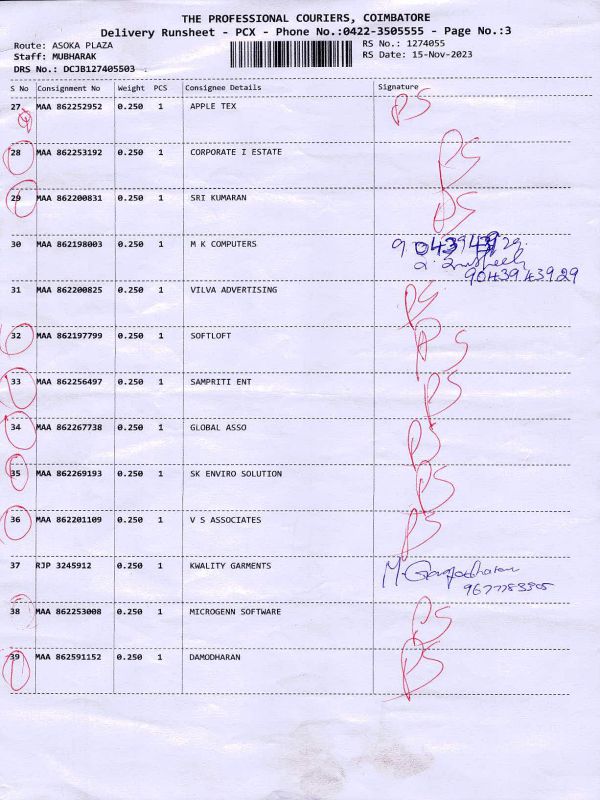 THE PROFESSIONAL COURIERS, COIMBATORE
Delivery Runsheet - PCX - Phone No.:0422-3505555 - Page No.:3
Route: ASOKA PLAZA RS No.: 1274055
Staff: MUBHARAK RS Date: 15-Nov-2023
DRS No.: DCJB127405503
S No Consignment No Weight PCS Consignee Details Signature
27 MAA 862252952 0.250 1 APPLE TEX PS
28 MAA 862253192 0.250 1 CORPORATE I ESTATE PS
29 MAA 862200831 0.250 1 SRI KUMARAN PS
30 MAA 862198003 0.250 1 M K COMPUTERS
9043943929
31 MAA 862200825 0.250 1 VILVA ADVERTISING PS
32 MAA 862197799 0.250 1 SOFTLOFT PS
33 MAA 862256497 0.250 1 SAMPRITI ENT PS
34 MAA 862267738 0.250 1 GLOBAL ASSO PS
35 MAA 862269193 0.250 1 SK ENVIRO SOLUTION PS
36 MAA 862201109 0.250 1 V S ASSOCIATES PS
37 RJP 3245912 0.250 1 KWALITY GARMENTS
38 MAA 862253008 0.250 1 MICROGENN SOFTWARE PS
39 MAA 862591152 0.250 1 DAMODHARAN PS